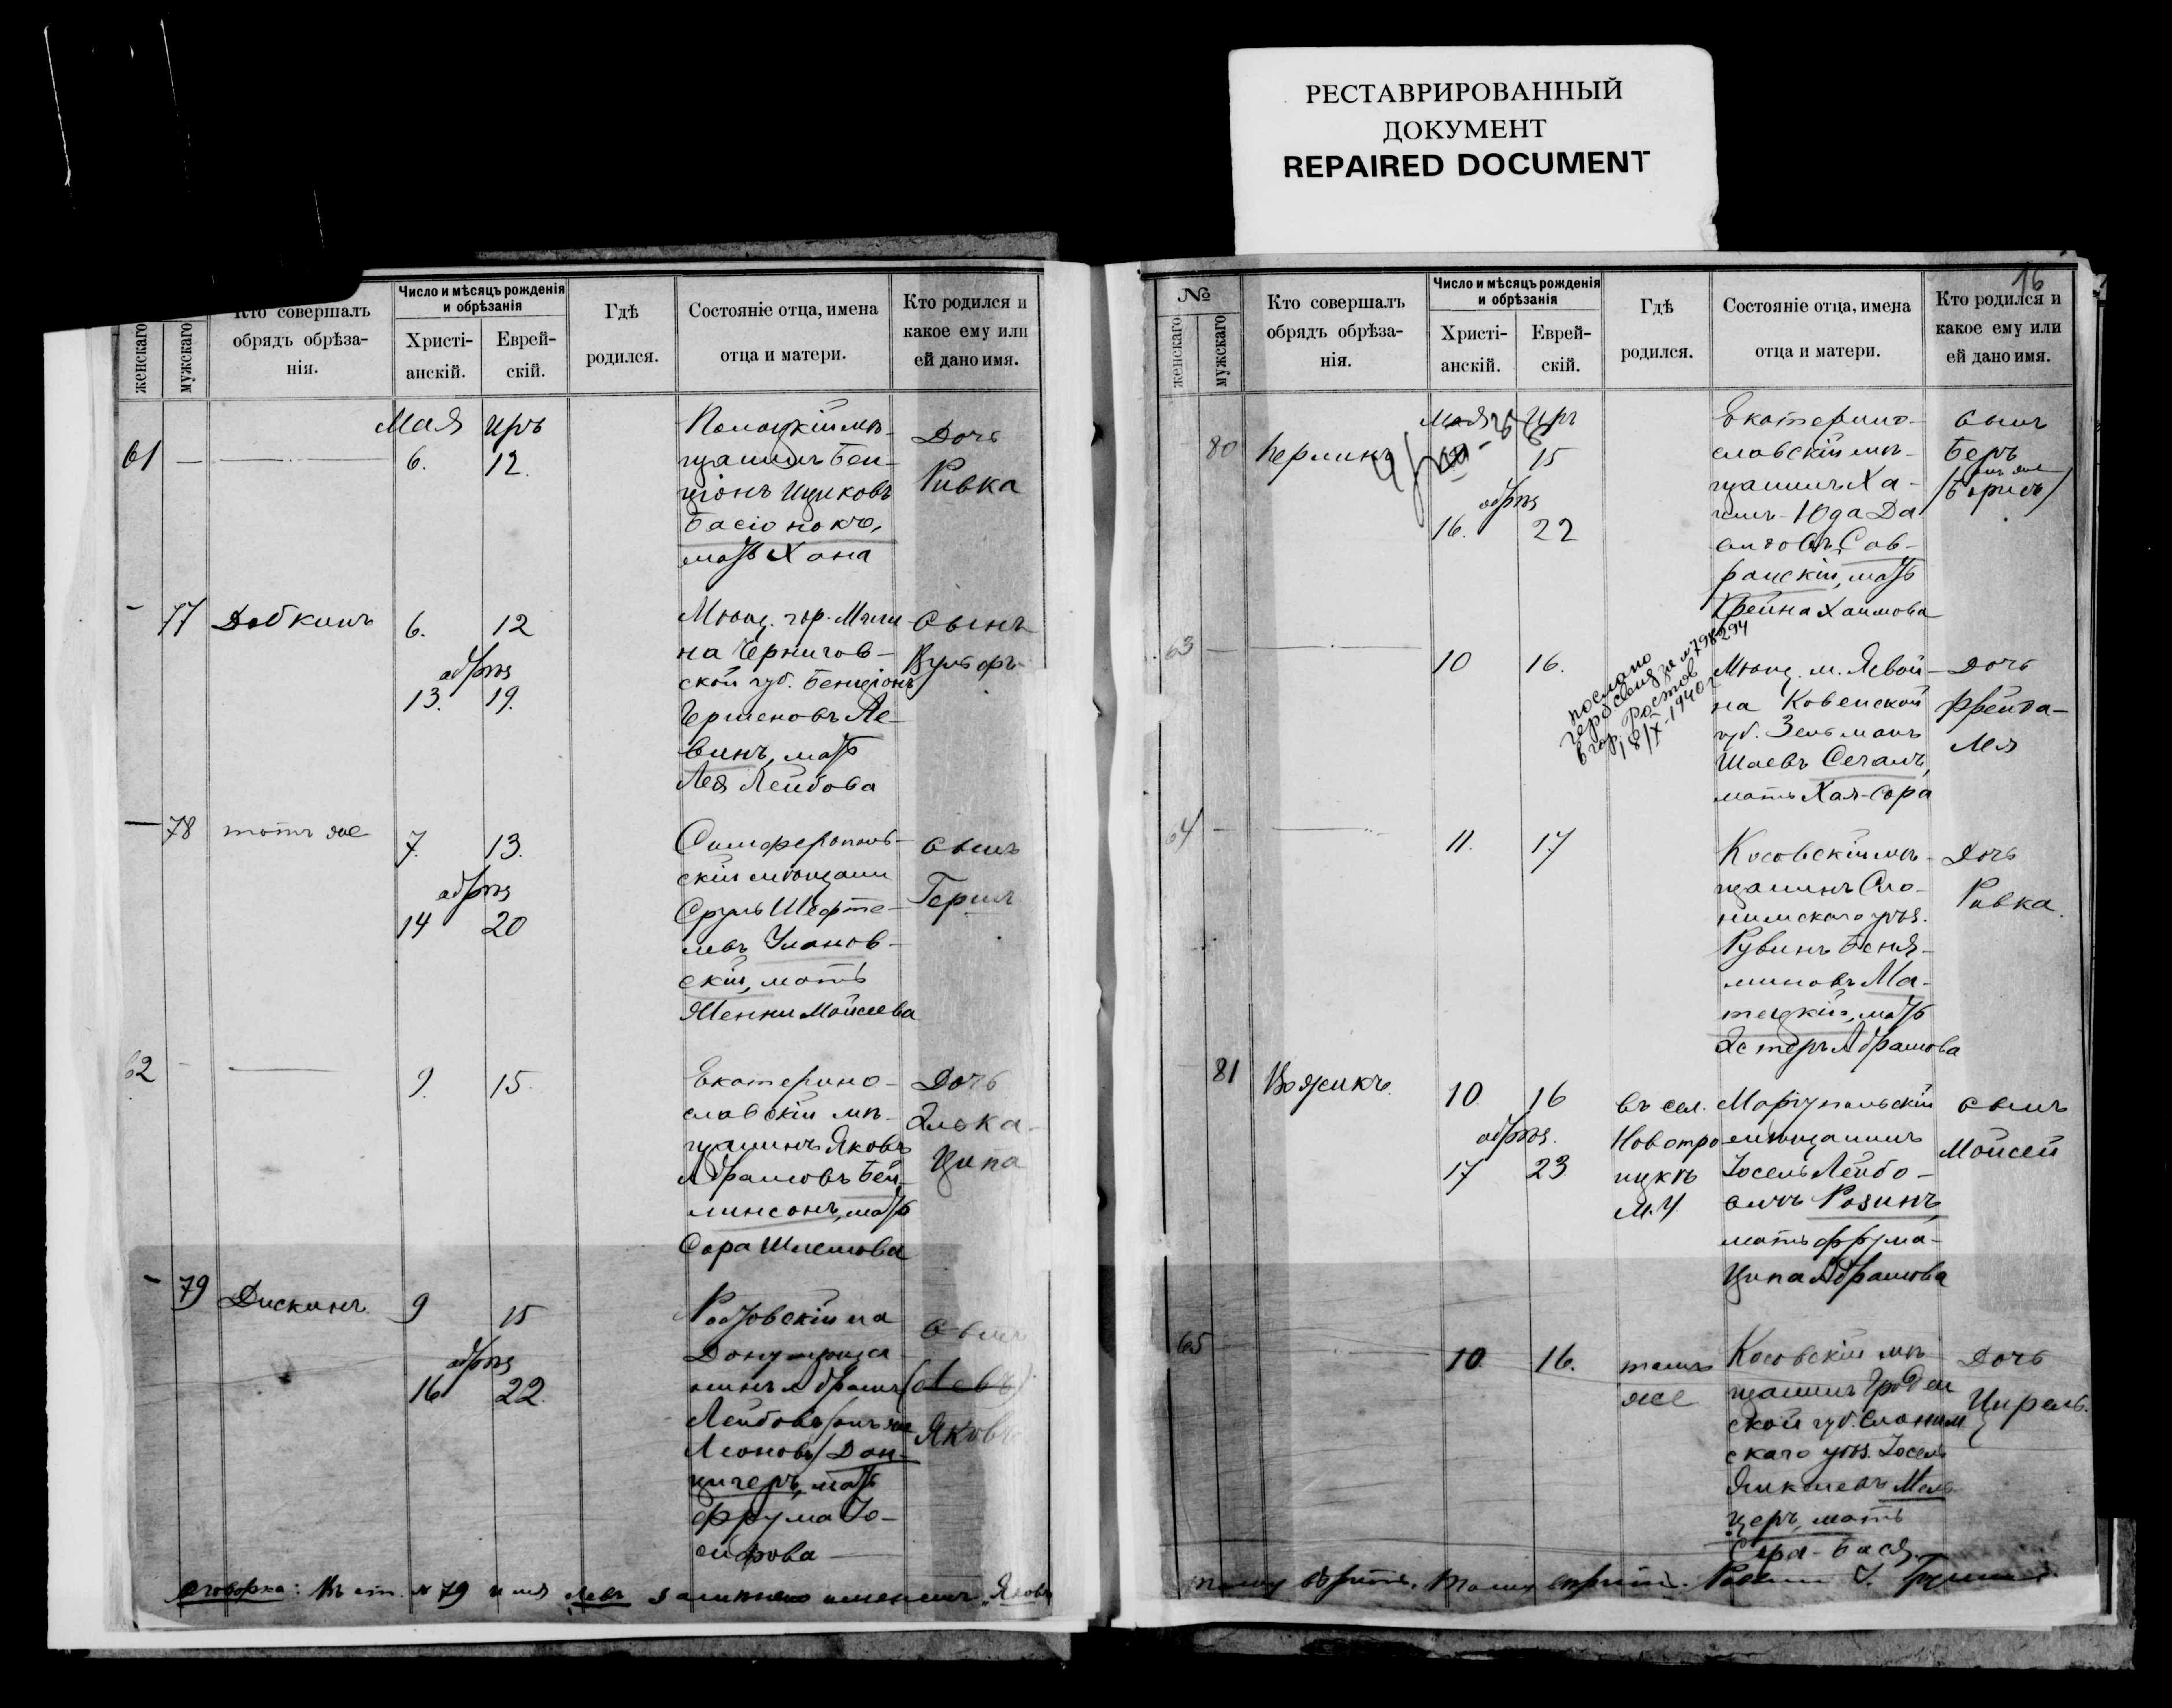 РЕСТАВРИРОВАННЫЙ
ДОКУМЕНТ
REPAIRED DOCUMENT
женскаго
мужскаго
Кто совершалъ
обрядъ обрѣза-
нія.
Число и мѣсяцъ рожденія
и обрѣзанія
Христі-
анскій.
Еврей-
скій.
Гдѣ
родился.
Состояніе отца, имена
отца и матери.
Кто родился и
какое ему или
ей дано имя.
Мая Иръ
61
6. 12.
Полоцкій мѣ-
щанинъ Бен-
ціонъ Ицковъ
мать Хана
Дочь
Ривка
77 Добкинъ
6. 12
обрѣз
13. 19.
Мѣщ. гор. Мгли-
на Чернигов-
ской губ. Бенціонъ
Гершеновъ Ле-
винъ, мать
Лея Лейбова
Сынъ
Вульфъ
78 тотъ же
7. 13.
обрѣз
14 20
Симферополь-
скій мѣщани
Сруль Шефте-
левъ Улановъ-
скій, мать
Женни Мойсеева
сынъ
Гершъ
62
9. 15
Екатерино-
славскій мѣ-
щанинъ Яковъ
Абрамовъ Бей-
линсонъ, мать
Сора Шлемова
Дочь
Элька-
Ципа
79 Дискинъ
9 15
обрѣз
16 22.
Ростовскій на
Дону мѣща
нинъ Абрамъ
Лейбовъ /онъ же
Леоновъ/ Дан-
цигеръ, мать
Фрума Іо-
сифова
сынъ
(Левъ)
Яковъ
Оговорка: Въ ст. № 79 имя Левъ замѣнено именемъ „Яковъ
16
№
женскаго
мужскаго
Кто совершалъ
обрядъ обрѣза-
нія.
Число и мѣсяцъ рожденія
и обрѣзанія
Христі-
анскій.
Еврей-
скій.
Гдѣ
родился.
Состояніе отца, имена
отца и матери.
Кто родился и
какое ему или
ей дано имя.
Мая Иръ
80 Перлинъ
15
обрѣз
16. 22
Екатерино-
славскій мѣ-
щанинъ Ха-
имъ-Юда Да-
видовъ Сав-
ранскій, мать
Крейна Хаимова
сынъ
Беръ
/онъ же
Борисъ/
63
10 16.
послано
в гор. Ростов
18/X-1940 г
Мѣщ. м. Явой-
на Ковенской
губ. Зельманъ
Шаевъ Сегалъ,
мать Хая-Сора
Дочь
Фрейда-
Лея
64
11. 17
Косовскій мѣ-
щанинъ Сло-
нимскаго уѣз.
Рувинъ Беня-
миновъ Ма-
тецкій, мать
Эстеръ Абрамова
Дочь
Ривка.
81 Вояжикъ.
10. 16
обрѣз.
17 23
въ сел.
Новотро
ицкѣ
М.У.
Маріупольскій
мѣщанинъ
Іосель Лейбо-
вичъ Розинъ,
мать Фрума-
Ципа Абрамова
сынъ
Мойсей
65
10. 16.
тамъ
же
Косовскій мѣ-
щанинъ Гроден
ской губ. Слоним
скаго уѣз. Іосель
Янкелевъ Мель
церъ, мать
Сора-Бася.
Дочь
Цирель.